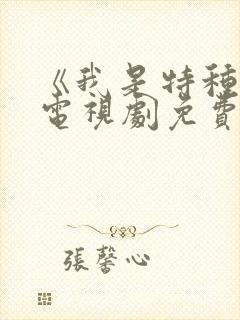 《我是特種
電視劇免費
張馨心